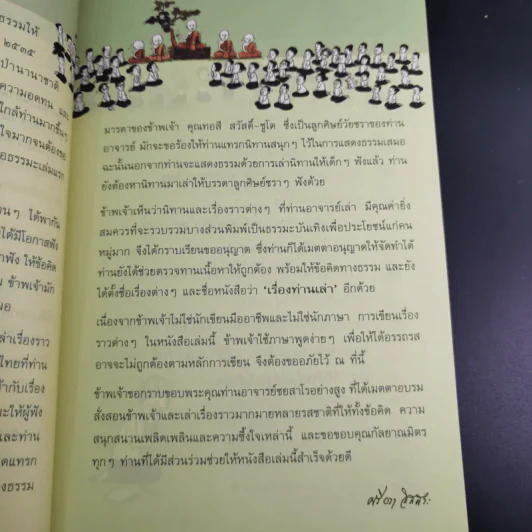 ธรรมให้
๒๕๓๕
ป่านานาชาติ
ความอดทน และ
ใกล้ท่านมากขึ้นๆ
ใจมากจนต้องขอ
อธรรมะเล่มแรก
านๆ ได้พากัน
ได้มีโอกาสฟัง
าฟัง ให้ข้อคิด
ข้าพเจ้ามัก
มอ
ล่าเรื่องราว
ไทยที่ท่าน
ากับเรื่อง
ละให้ผู้ฟัง
และท่าน
ดแทรก
งธรรม
มารดาของข้าพเจ้า คุณทอสี สวัสดิ์-ชูโต ซึ่งเป็นลูกศิษย์วัยชราของท่าน
อาจารย์ มักจะขอร้องให้ท่านแทรกนิทานสนุกๆ ไว้ในการแสดงธรรมเสมอ
ฉะนั้นนอกจากท่านจะแสดงธรรมด้วยการเล่านิทานให้เด็กๆ ฟังแล้ว ท่าน
ยังต้องหานิทานมาเล่าให้บรรดาลูกศิษย์ชราๆ ฟังด้วย
ข้าพเจ้าเห็นว่านิทานและเรื่องราวต่างๆ ที่ท่านอาจารย์เล่า มีคุณค่ายิ่ง
สมควรที่จะรวบรวมบางส่วนพิมพ์เป็นธรรมะบันเทิงเพื่อประโยชน์แก่คน
หมู่มาก จึงได้กราบเรียนขออนุญาต ซึ่งท่านก็ได้เมตตาอนุญาตให้จัดทำได้
ท่านยังได้ช่วยตรวจทานเนื้อหาให้ถูกต้อง พร้อมให้ข้อคิดทางธรรม และยัง
ได้ตั้งชื่อเรื่องต่างๆ และชื่อหนังสือว่า 'เรื่องท่านเล่า' อีกด้วย
เนื่องจากข้าพเจ้าไม่ใช่นักเขียนมืออาชีพและไม่ใช่นักภาษา การเขียนเรื่อง
ราวต่างๆ ในหนังสือเล่มนี้ ข้าพเจ้าใช้ภาษาพูดง่ายๆ เพื่อให้ได้อรรถรส
อาจจะไม่ถูกต้องตามหลักการเขียน จึงต้องขออภัยไว้ ณ ที่นี้
ข้าพเจ้าขอกราบขอบพระคุณท่านอาจารย์ชยสาโรอย่างสูง ที่ได้เมตตาอบรม
สั่งสอนข้าพเจ้าและเล่าเรื่องราวมากมายหลายรสชาติที่ให้ทั้งข้อคิด ความ
สนุกสนานเพลิดเพลินและความซึ้งใจเหล่านี้ และขอขอบคุณกัลยาณมิตร
ทุกๆ ท่านที่ได้มีส่วนร่วมช่วยให้หนังสือเล่มนี้สำเร็จด้วยดี